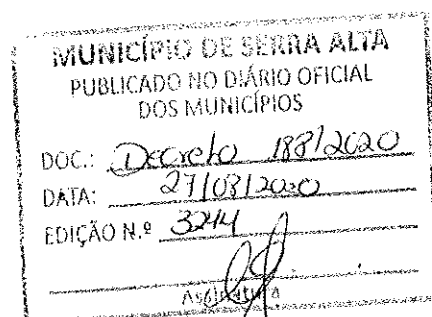 MUNICÍPIO DE SERRA ALTA
PUBLICADO NO DIÁRIO OFICIAL
DOS MUNICÍPIOS
DOC.: Decreto 188/2020
DATA: 27/08/2020
EDIÇÃO N.º 3244
Assinatura